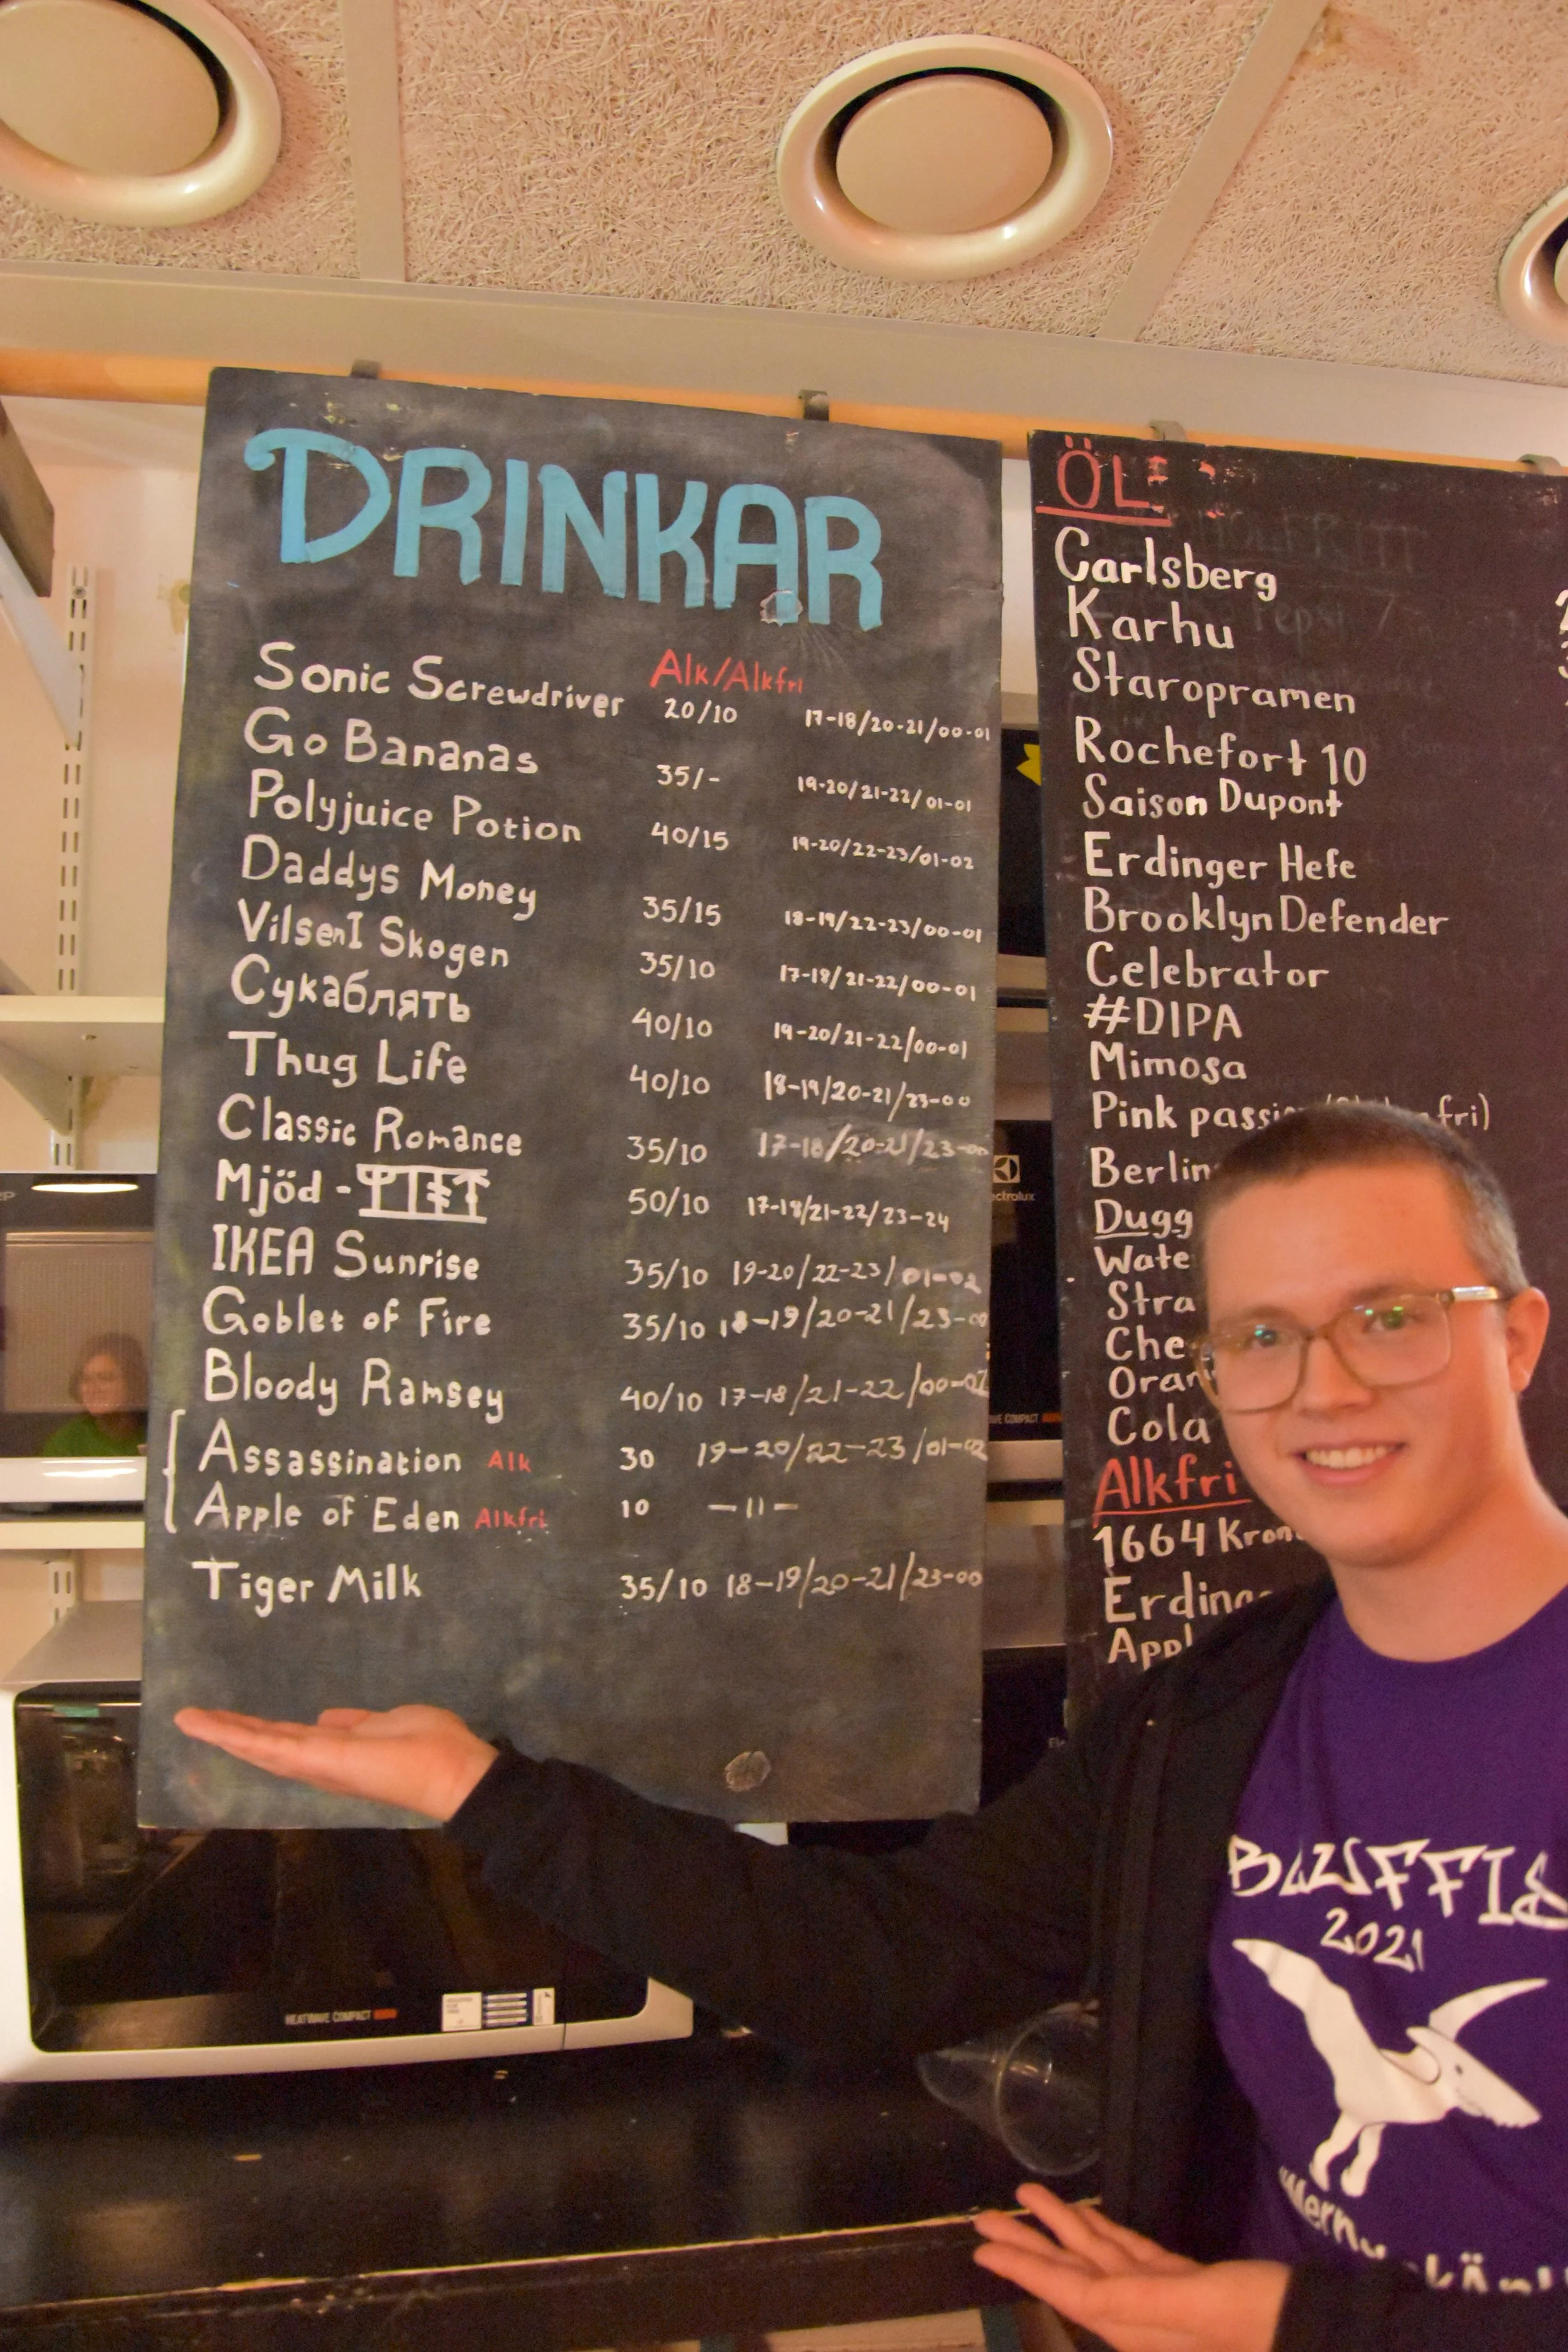 DRINKAR
Alk/Alkfri
Sonic Screwdriver 20/10 17-18/20-21/00-01
Go Bananas 35/- 19-20/21-22/01-01
Polyjuice Potion 40/15 19-20/22-23/01-02
Daddys Money 35/15 18-19/22-23/00-01
VilsenI Skogen 35/10 17-18/21-22/00-01
Сукаблять 40/10 19-20/21-22/00-01
Thug Life 40/10 18-19/20-21/23-00
Classic Romance 35/10 17-18/20-21/23-00
Mjöd - 50/10 17-18/21-22/23-24
IKEA Sunrise 35/10 19-20/22-23/01-02
Goblet of Fire 35/10 18-19/20-21/23-00
Bloody Ramsey 40/10 17-18/21-22/00-02
Assassination Alk 30 19-20/22-23/01-02
Apple of Eden Alkfri 10 —11—
Tiger Milk 35/10 18-19/20-21/23-00
ÖL:
Carlsberg
Karhu
Staropramen
Rochefort 10
Saison Dupont
Erdinger Hefe
Brooklyn Defender
Celebrator
#DIPA
Mimosa
Pink passi fri)
Berlin
Dugg
Wate
Stra
Che
Oran
Cola
Alkfri
1664 Kron
Erding
Appl
Electrolux
HEATWAVE COMPACT
2021